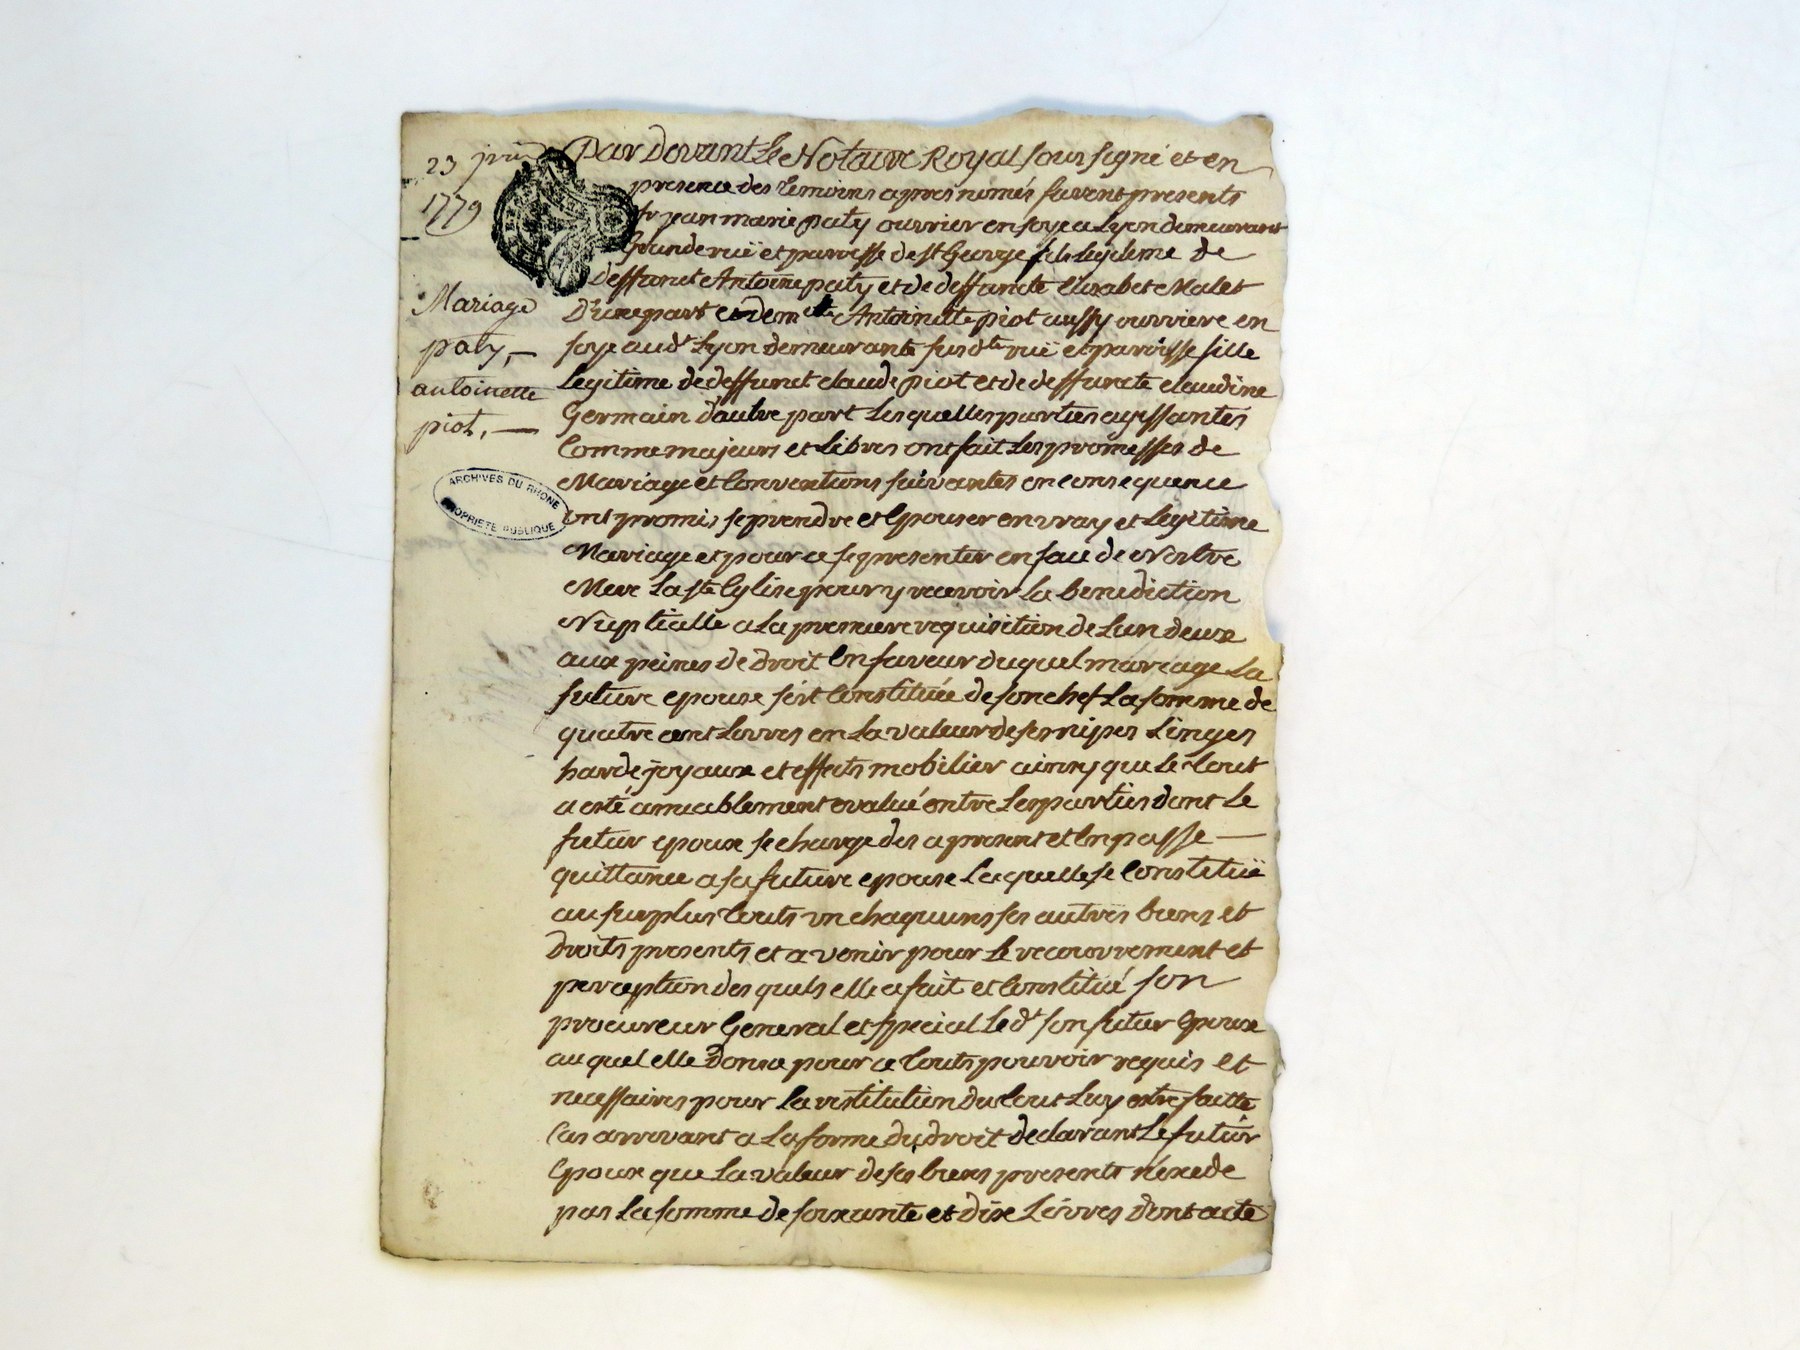 23
1779
Mariage
paty,
antoinette
piot,
ARCHIVES DU RHONE
PROPRIETE PUBLIQUE
Par Devant Le Notaire Royal sousigné et en
presence des temoins apres només furent presents
sr jean marie paty ouvrier en soye a Lyon demeurant
Grande ruë et paroisse de st George fils legitime de
deffunct Antoine paty et de deffuncte Elizabet Malet
D'une part et dem.lle Antoinette piot aussy ouvriere en
soye aud.t Lyon demeurante susd.te ruë et paroisse fille
legitime de deffunct claude piot et de deffuncte claudine
Germain d'autre part Lesquelles parties agissantes
Comme majeurs et Libres ont fait Les promesses de
Mariage et Conventions suivantes en consequence
ont promis se prendre et Epouser en vray et Legitime
Mariage et pour ce se presenter en face de Nostre
Mere La ste Eglise pour y recevoir La benediction
Nuptialle a La premiere requisition de L'un deux
aux peines de Droit En faveur duquel mariage La
future epouse s'est Constituée de son chef La somme de
quatre cent Livres en La valeur de ses nipes Linges
harde joyaux et effects mobilier ainsy que Le tout
a esté amiablement evalué entre Les parties dont Le
futur epoux se charge des a present et En passe
quittance a sa future epouse Laquelle se Constituë
au surplus touts un chaquuns ses autres biens et
droits presents et avenir pour Le recouvrement et
perception des quels elle a fait et Constitué son
procureur General et special Led.t son futur Epoux
auquel elle Donne pour ce touts pouvoir requis et
necessaires pour la restitution du tout Luy estre faitte
Cas arrivant a La forme du droit declarant Le futur
Epoux que La valeur de ses biens presents n'exede
pas La somme de soixante et dix Livres dont acte